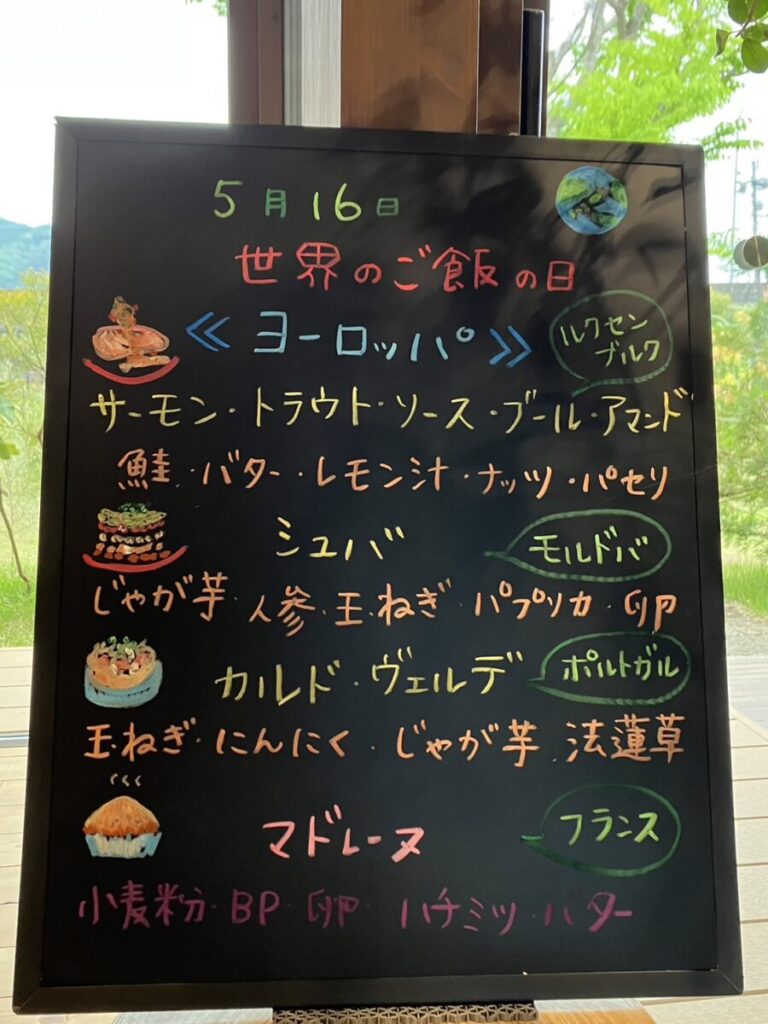 5月16日
世界のご飯の日
≪ ヨーロッパ ≫
ルクセン
ブルク
サーモン・トラウト・ソース・ブール・アマンド
鮭・バター・レモン汁・ナッツ・パセリ
シュバ
モルドバ
じゃが芋・人参・玉ねぎ・パプリカ・卵
カルド・ヴェルデ
ポルトガル
玉ねぎ・にんにく・じゃが芋・法蓮草
マドレーヌ
フランス
小麦粉・BP・卵・ハチミツ・バター